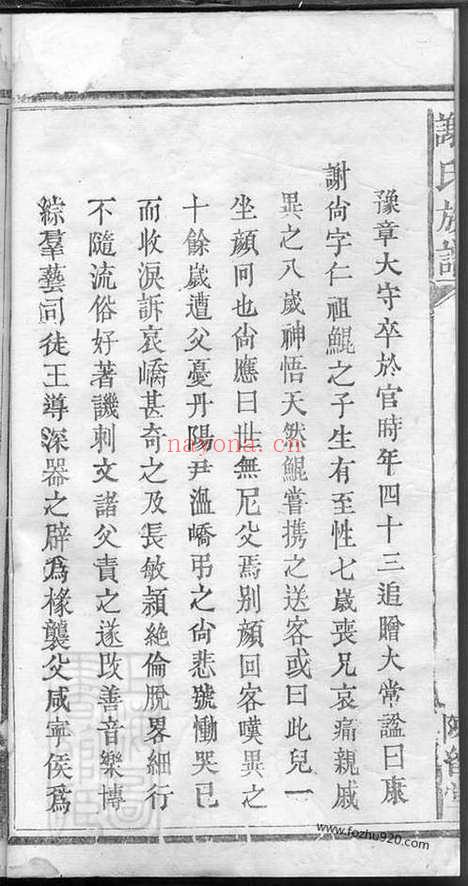 謝氏族譜
豫章大守卒於官時年四十三追贈大常謚曰康
謝尙字仁祖鯤之子生有至性七歲喪兄哀痛親戚
異之八歲神悟天然鯤嘗携之送客或曰此兒一
坐顔回也尙應曰坐無尼父焉別顔回客嘆異之
十餘歲遭父憂丹陽尹溫嶠弔之尙悲號慟哭已
而收淚訴哀嶠甚奇之及長敏頴絶倫脫畧細行
不隨流俗好著譏刺文諸父責之遂改善音樂博
綜羣藝司徒王導深器之辟爲椽襲父咸寧侯爲
nayona.cn
www.fozhu920.com